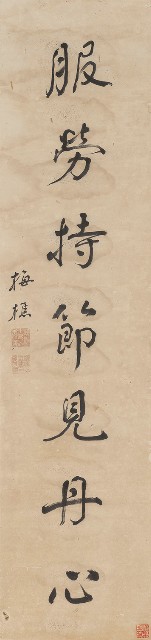 服勞持節見丹心
梅樵